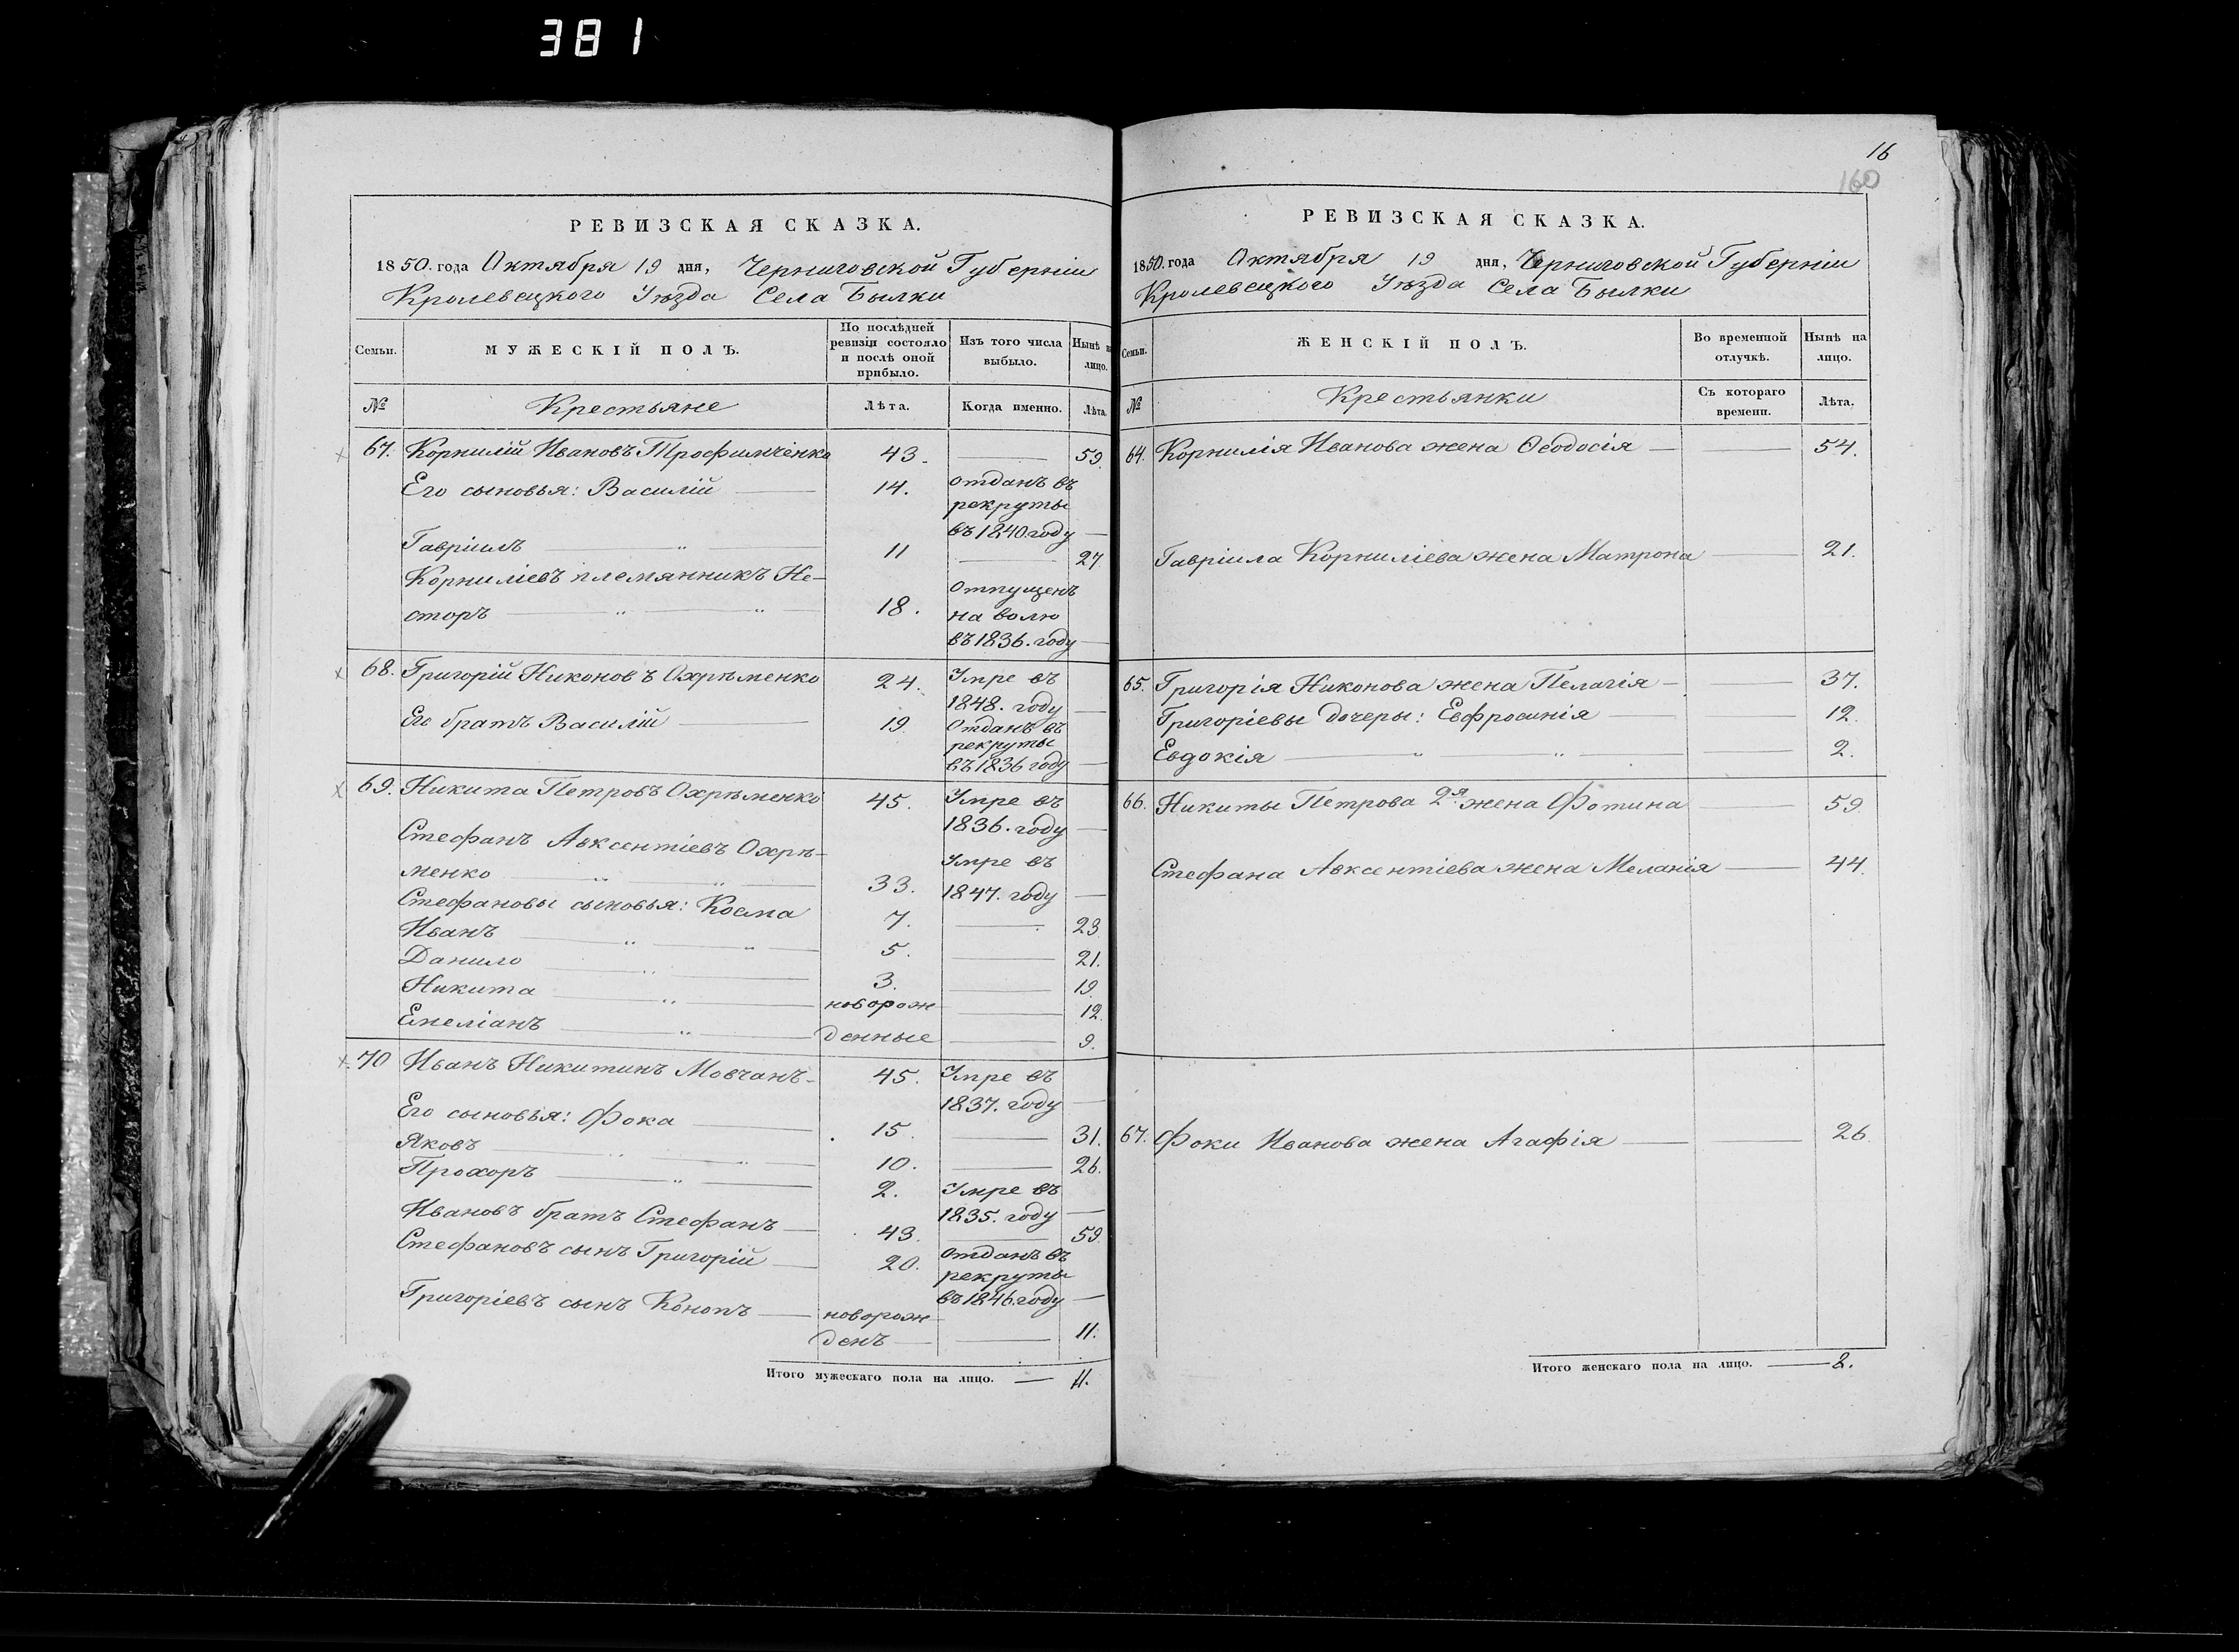 381
РЕВИЗСКАЯ СКАЗКА.
1850. года Октября 19 дня, Черниговской Губерніи
Кролевецкого Уѣзда Села Былки
Семьи.
МУЖЕСКІЙ ПОЛЪ.
По послѣдней ревизіи состояло и послѣ оной прибыло.
Изъ того числа выбыло.
Нынѣ на лицо.
№ Крестьяне Лѣта. Когда именно. Лѣта.
67. Корнилій Ивановъ Трофимченко 43. — 59.
Его сыновья: Василій — 14. отданъ въ
рекруты
въ 1840. году —
Гавріилъ — " — 11 — 27.
Корниліевъ племянникъ Не-
сторъ — " — " — 18. Отпущенъ
на волю
въ 1836. году —
68. Григорій Никоновъ Охрѣменко 24. Умре въ
1848. году —
Его братъ Василій — 19. Отданъ въ
рекруты
въ 1836 году —
69. Никита Петровъ Охрѣменко 45. Умре въ
1836. году —
Стефанъ Авксентіевъ Охрѣ-
менко — " — " — 33. Умре въ
1847. году —
Стефановы сыновья: Косма 7. — 23.
Иванъ — " — " — 5. — 21.
Данило — " — 3. — 19.
Никита — " — новорож — 12.
Емеліанъ — " — денные — 9.
70 Иванъ Никитинъ Мовчанъ - 45. Умре въ
1837. году —
Его сыновья: Фока — 15. — 31.
Яковъ — " — " — 10. — 26.
Прохоръ — " — 2. Умре въ
1835. году —
Ивановъ братъ Стефанъ — 43. — 59.
Стефановъ сынъ Григорій — 20. отданъ въ
рекруты
въ 1846 году —
Григоріевъ сынъ Кононъ — новорож
денъ — — 11.
Итого мужескаго пола на лицо. — 11.
16
160
РЕВИЗСКАЯ СКАЗКА.
1850. года Октября 19 дня, Черниговской Губерніи
Кролевецкого Уѣзда Села Былки
Семьи.
ЖЕНСКІЙ ПОЛЪ.
Во временной отлучкѣ.
Нынѣ на лицо.
№ Крестьянки Съ котораго времени. Лѣта.
64. Корнилія Иванова жена Ѳеодосія — — 54.
Гавріила Корниліева жена Матрона — 21.
65. Григорія Никонова жена Пелагія — — 37.
Григоріевы дочеры: Евфросинія — — 12.
Евдокія — " — " — — 2.
66. Никиты Петрова 2я. жена Фотина — 59.
Стефана Авксентіева жена Меланія — 44.
67. Фоки Иванова жена Агафія — — 26.
Итого женскаго пола на лицо. — 8.